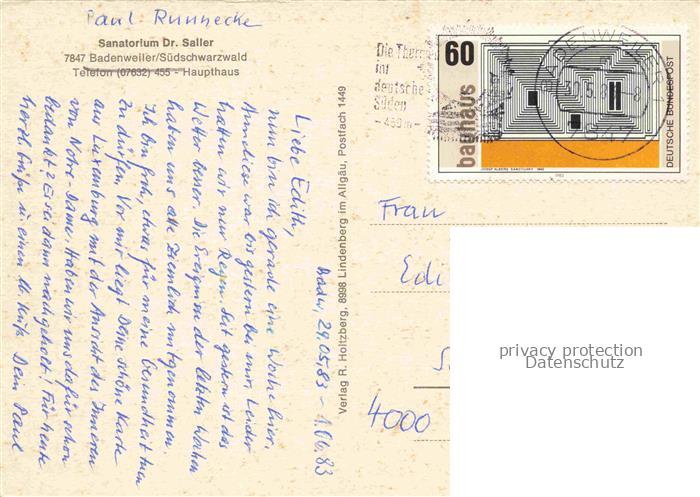 Paul Runnecke
Sanatorium Dr. Saller
7847 Badenweiler/Südschwarzwald
Telefon (07632) 455 - Haupthaus
Badw, 29.05.83 - 1.06.83
Liebe Edith,
nun bin ich gerade eine Woche hier.
Annelien war bis gestern bei mir, leider
hatten wir nur Regen. Seit gestern ist das
Wetter besser. Die Ereignisse der letzten Wochen
haben uns alle ziemlich mitgenommen.
Ich bin froh, etwas für meine Gesundheit tun
zu dürfen. Vor mir liegt Deine schöne Karte
aus Luxemburg mit der Ansicht des Inneren
von Notre-Dame. Haben wir uns dafür schon
bedankt? Es sei dann nachgeholt! Für heute
herzl. Grüße u. einen kl. Kuß Dein Paul
Verlag R. Holtzberg, 8998 Lindenberg im Allgäu, Postfach 1449
Die Therme
im
deutschen
Süden
- 450m -
BADENWEILER 1
30.5.8
-8
7847
60
bauhaus
DEUTSCHE BUNDESPOST
JOSEF ALBERS SANCTUARY 1942
1983
Frau
Edi
4000
privacy protection
Datenschutz